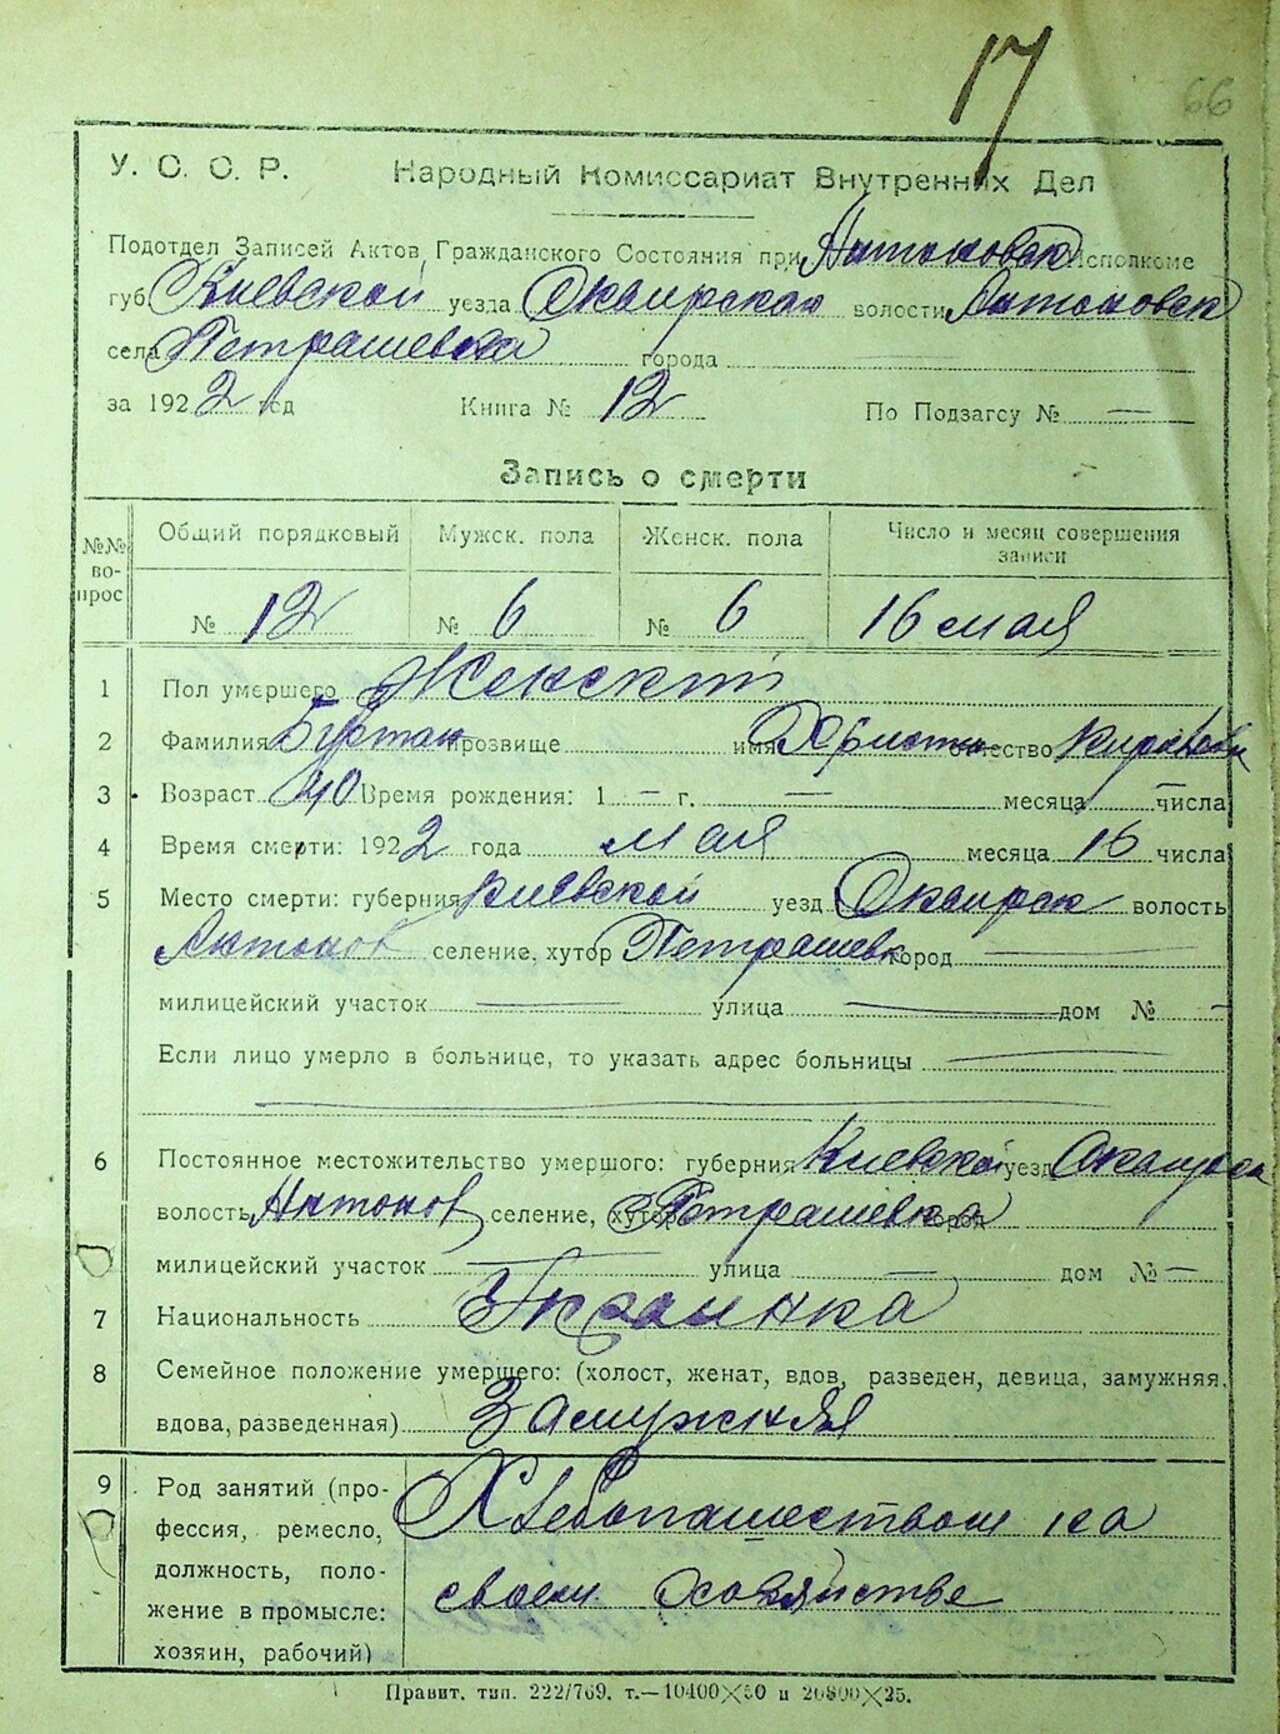 17
66
У. С. С. Р. Народный Комиссариат Внутренних Дел
Подотдел Записей Актов Гражданского Состояния при Антоновск Исполкоме
губ. Киевской уезда Сквирская волости Антоновск
села Петрашевка города
за 1922 год Книга № 12 По Подзагсу № —
Запись о смерти
№№ вопрос Общий порядковый Мужск. пола Женск. пола Число и месяц совершения записи
№ 12 № 6 № 6 16 мая
1 Пол умершего Женский
2 Фамилия прозвище имя Христи отчество
3 Возраст 40 Время рождения: 1 — г. — месяца — числа
4 Время смерти: 1922 года мая месяца 16 числа
5 Место смерти: губерния Киевской уезд Сквирск волость
Антонов селение, хутор Петрашевк город —
милицейский участок — улица — дом № —
Если лицо умерло в больнице, то указать адрес больницы —
6 Постоянное местожительство умершого: губерния Киевской уезд
волость Антонов селение, хутор Петрашевка город
милицейский участок — улица — дом № —
7 Национальность Украинка
8 Семейное положение умершего: (холост, женат, вдов, разведен, девица, замужняя,
вдова, разведенная) Замужняя
9 Род занятий (про-
фессия, ремесло,
должность, поло-
жение в промысле:
хозяин, рабочий)
Хлебопашеством на
своем хозяйстве
Правит. тип. 222/769. т.—10400×50 и 20800×25.